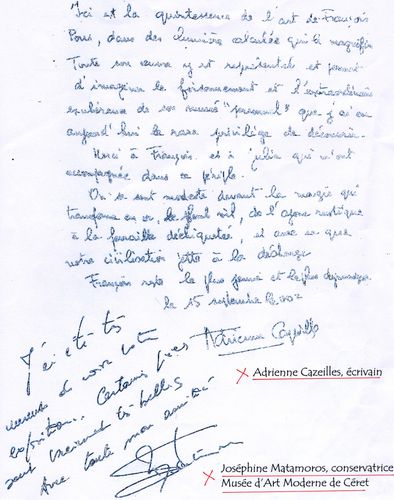 Ici est la quintessence de l'art de François
dans des lumière qui la magnifie
Toute son œuvre y est représentée et permet
d'imaginer le foisonnement et l'extraordinaire
exubérance de son musée "permanent" que j'ai eu
aujourd'hui le rare privilège de découvrir.
Merci à François et à Julia qui m'ont
accompagnée dans ce périple.
On se sent modeste devant la magie qui
transforme en or, le fil, de l'
à la ferraille déchiquetée, et avec ce que
notre civilisation jette à la décharge
François reste le plus jeune et le plus
le 15 septembre 2002
Adrienne Cazeilles
J'ai été très
heureuse de voir votre
exposition. Certaines pièces
sont vraiment très belles
Avec toute mon amitié
x Adrienne Cazeilles, écrivain
x Joséphine Matamoros, conservatrice
Musée d'Art Moderne de Céret